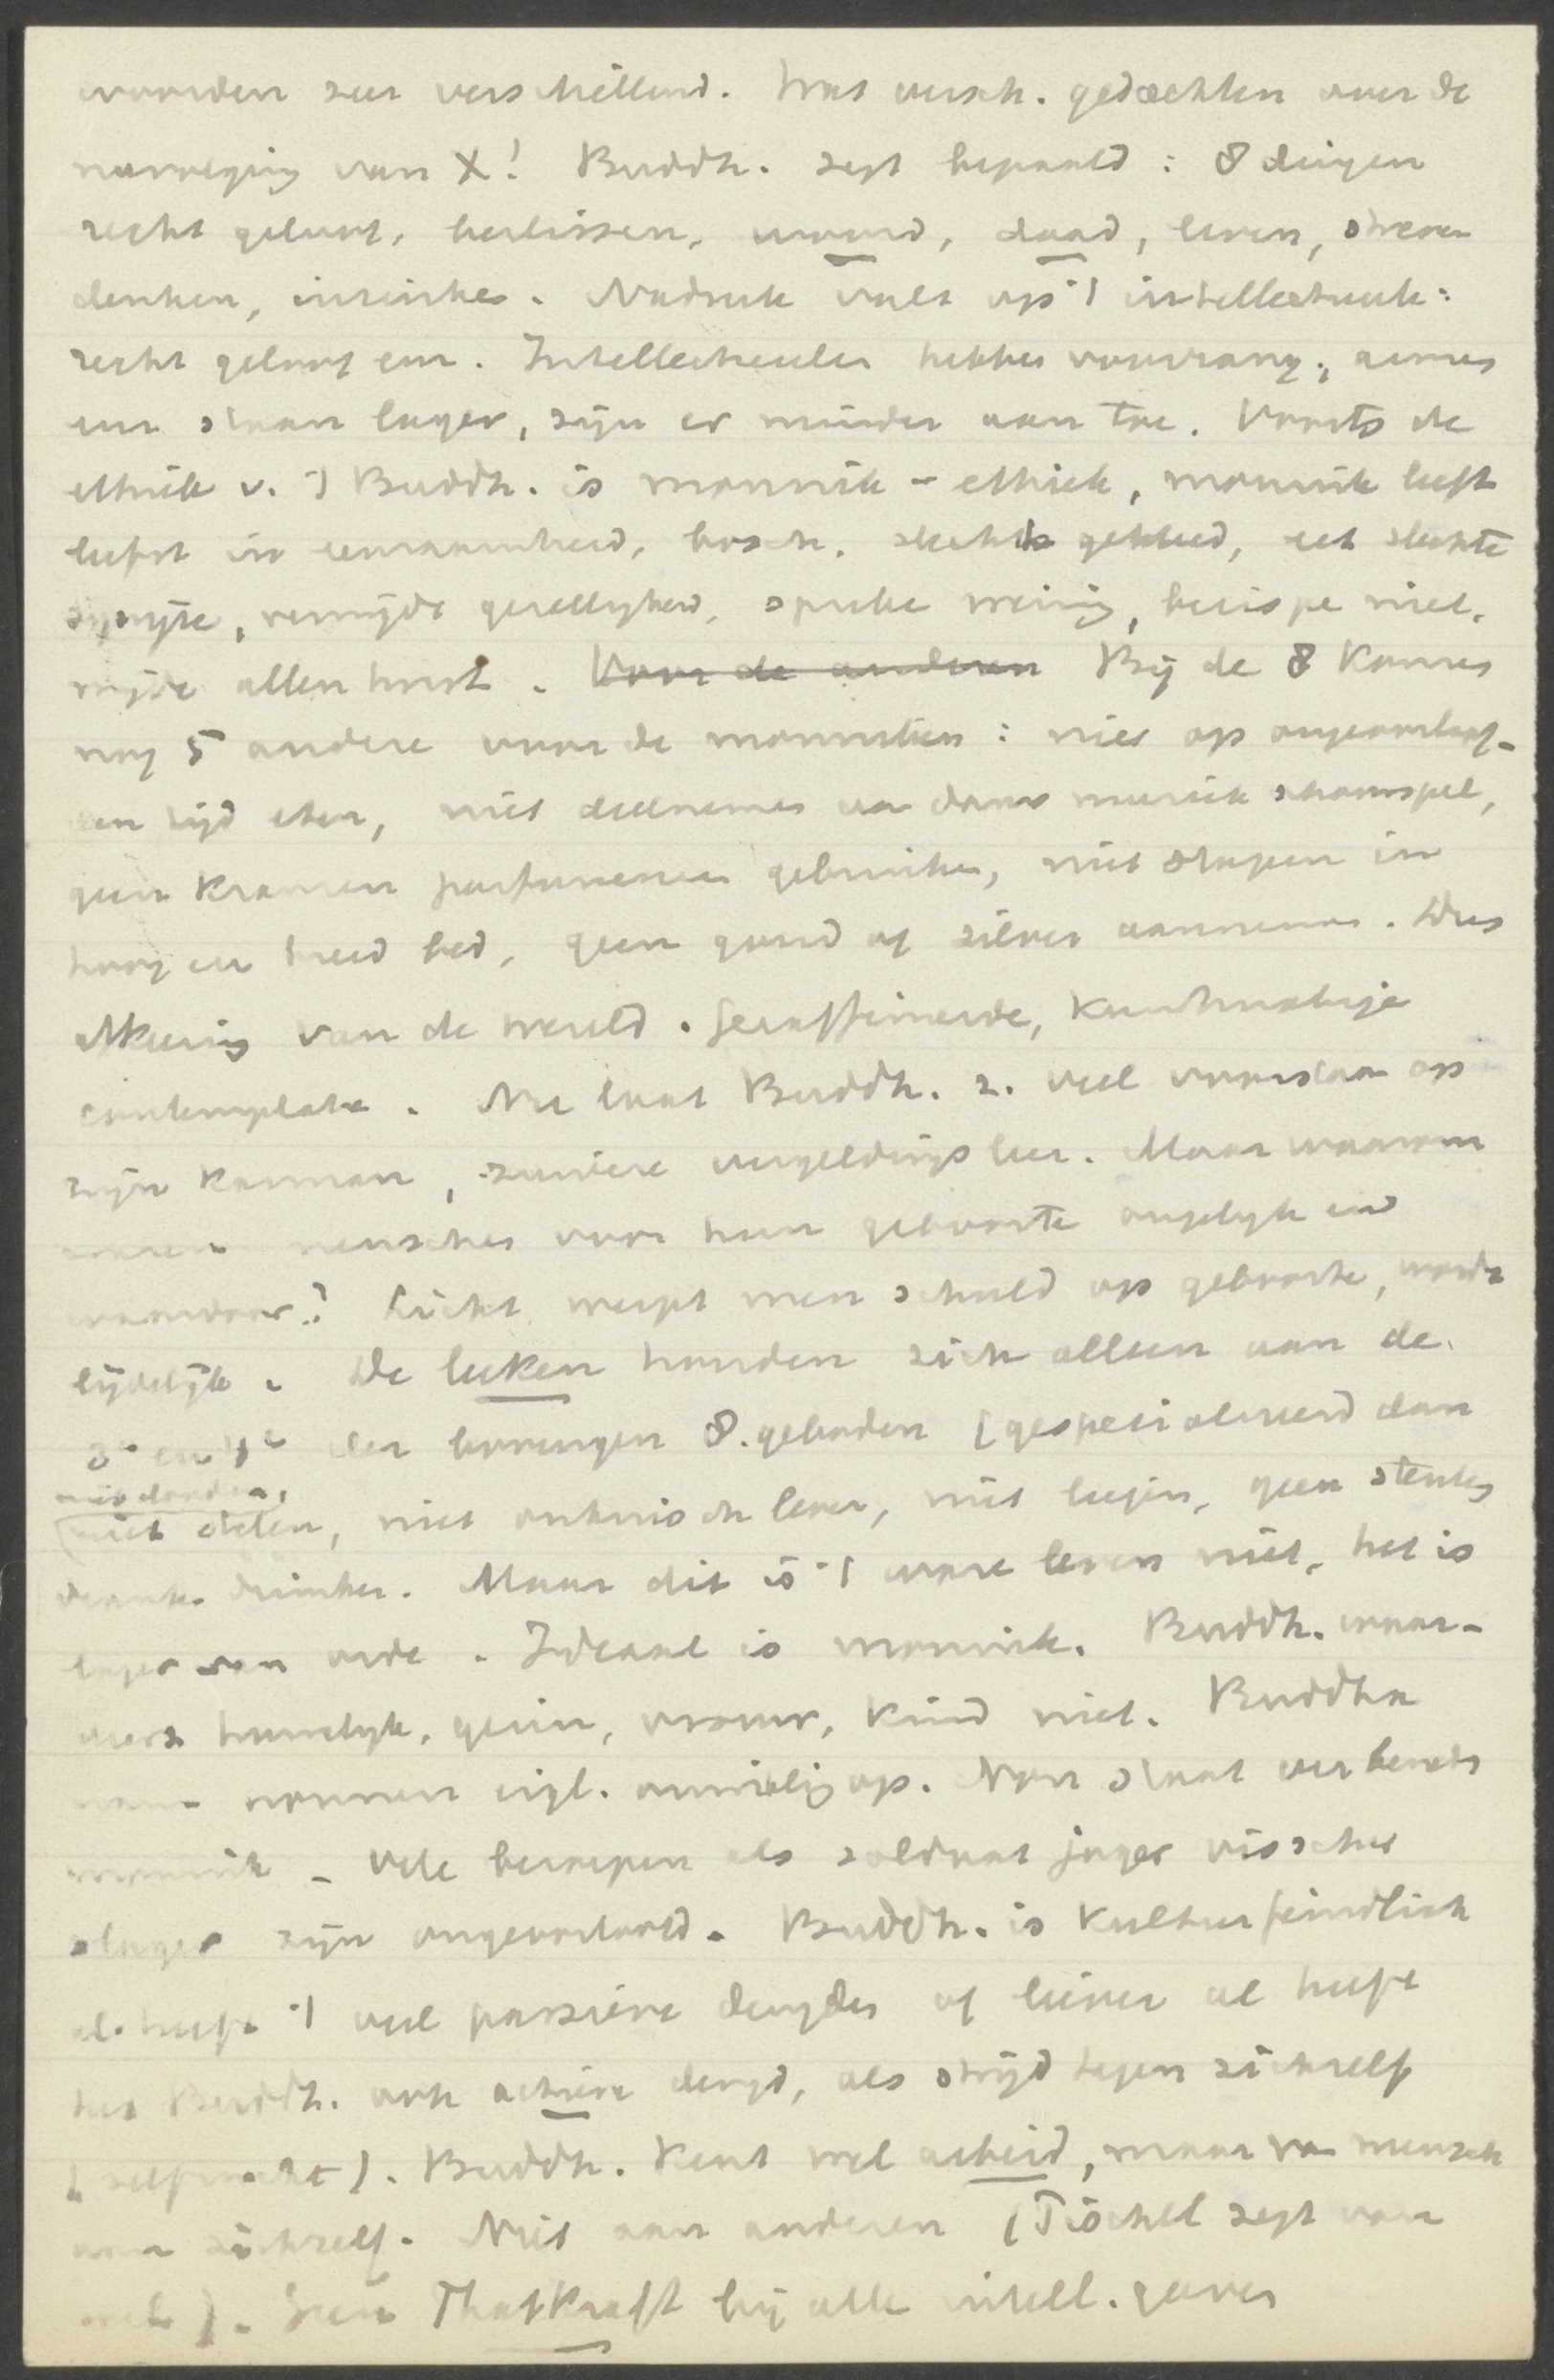 woorden zeer verschillend. Wat versch. gedachten over de
navolging van X! Buddh. zegt bepaald: 8 dingen
recht geloof, beslissen, woord, daad, leven, streven
denken, inzinken. Nadruk valt op 't intellectueele:
recht geloof een. Intellectueelen hebben voorrang, armen
enz staan lager, zijn er minder aan toe. Voorts de
ethiek v. 't Buddh. is monnik-ethiek, monnik leeft
liefst in eenzaamheid, bosch, slecht gekleed, eet slechte
spijze, vermijdt gezelligheid, spreke weinig, berispe niet,
mijde allen twist. Voor de anderen Bij de 8 komen
nog 5 andere voor de monniken: niet op ongeoorloof-
den tijd eten, niet deelnemen aan dans muziek schouwspel,
geen kransen parfumerieen gebruiken, niet slapen in
hoog en breed bed, geen goud of zilver aannemen. Dus
afkeerig van de wereld. Geraffineerde, kunstmatige
contemplatie. Nu laat Buddh. z. veel voorstaan op
zijn karman, zuivere vergeldingsleer. Maar waarom
waren menschen voor hun geboorte ongelijk en
waardoor? Licht werpt men schuld op geboorte, wordt
lijdelijk. De leeken houden zich alleen aan de
3e en 4e der bovengen 8 geboden (gespecialiseerd dan
niet dooden,
niet stelen, niet onkuisch leven, niet liegen, geen sterken
drank drinken. Maar dit is 't ware leven niet, het is
lager van orde. Ideaal is monnik. Buddh. waar-
deert huwelijk, gezin, vrouw, kind niet. Buddha
nam nonnen eigl. onwillig op. Non staat ver beneden
monnik - Vele beroepen als soldaat jager visscher
slager zijn ongeoorloofd. Buddh. is Kulturfeindlich
al heeft 't veel passieve deugden of liever al heeft
het Buddh. ook actieve deugd, als strijd tegen zichzelf
(zelfzucht). Buddh. kent wel arbeid, maar van mensch
aan zichzelf. Niet aan anderen (Tischhl zegt van
wel). Geen Thatkraft bij alle intell. gaven